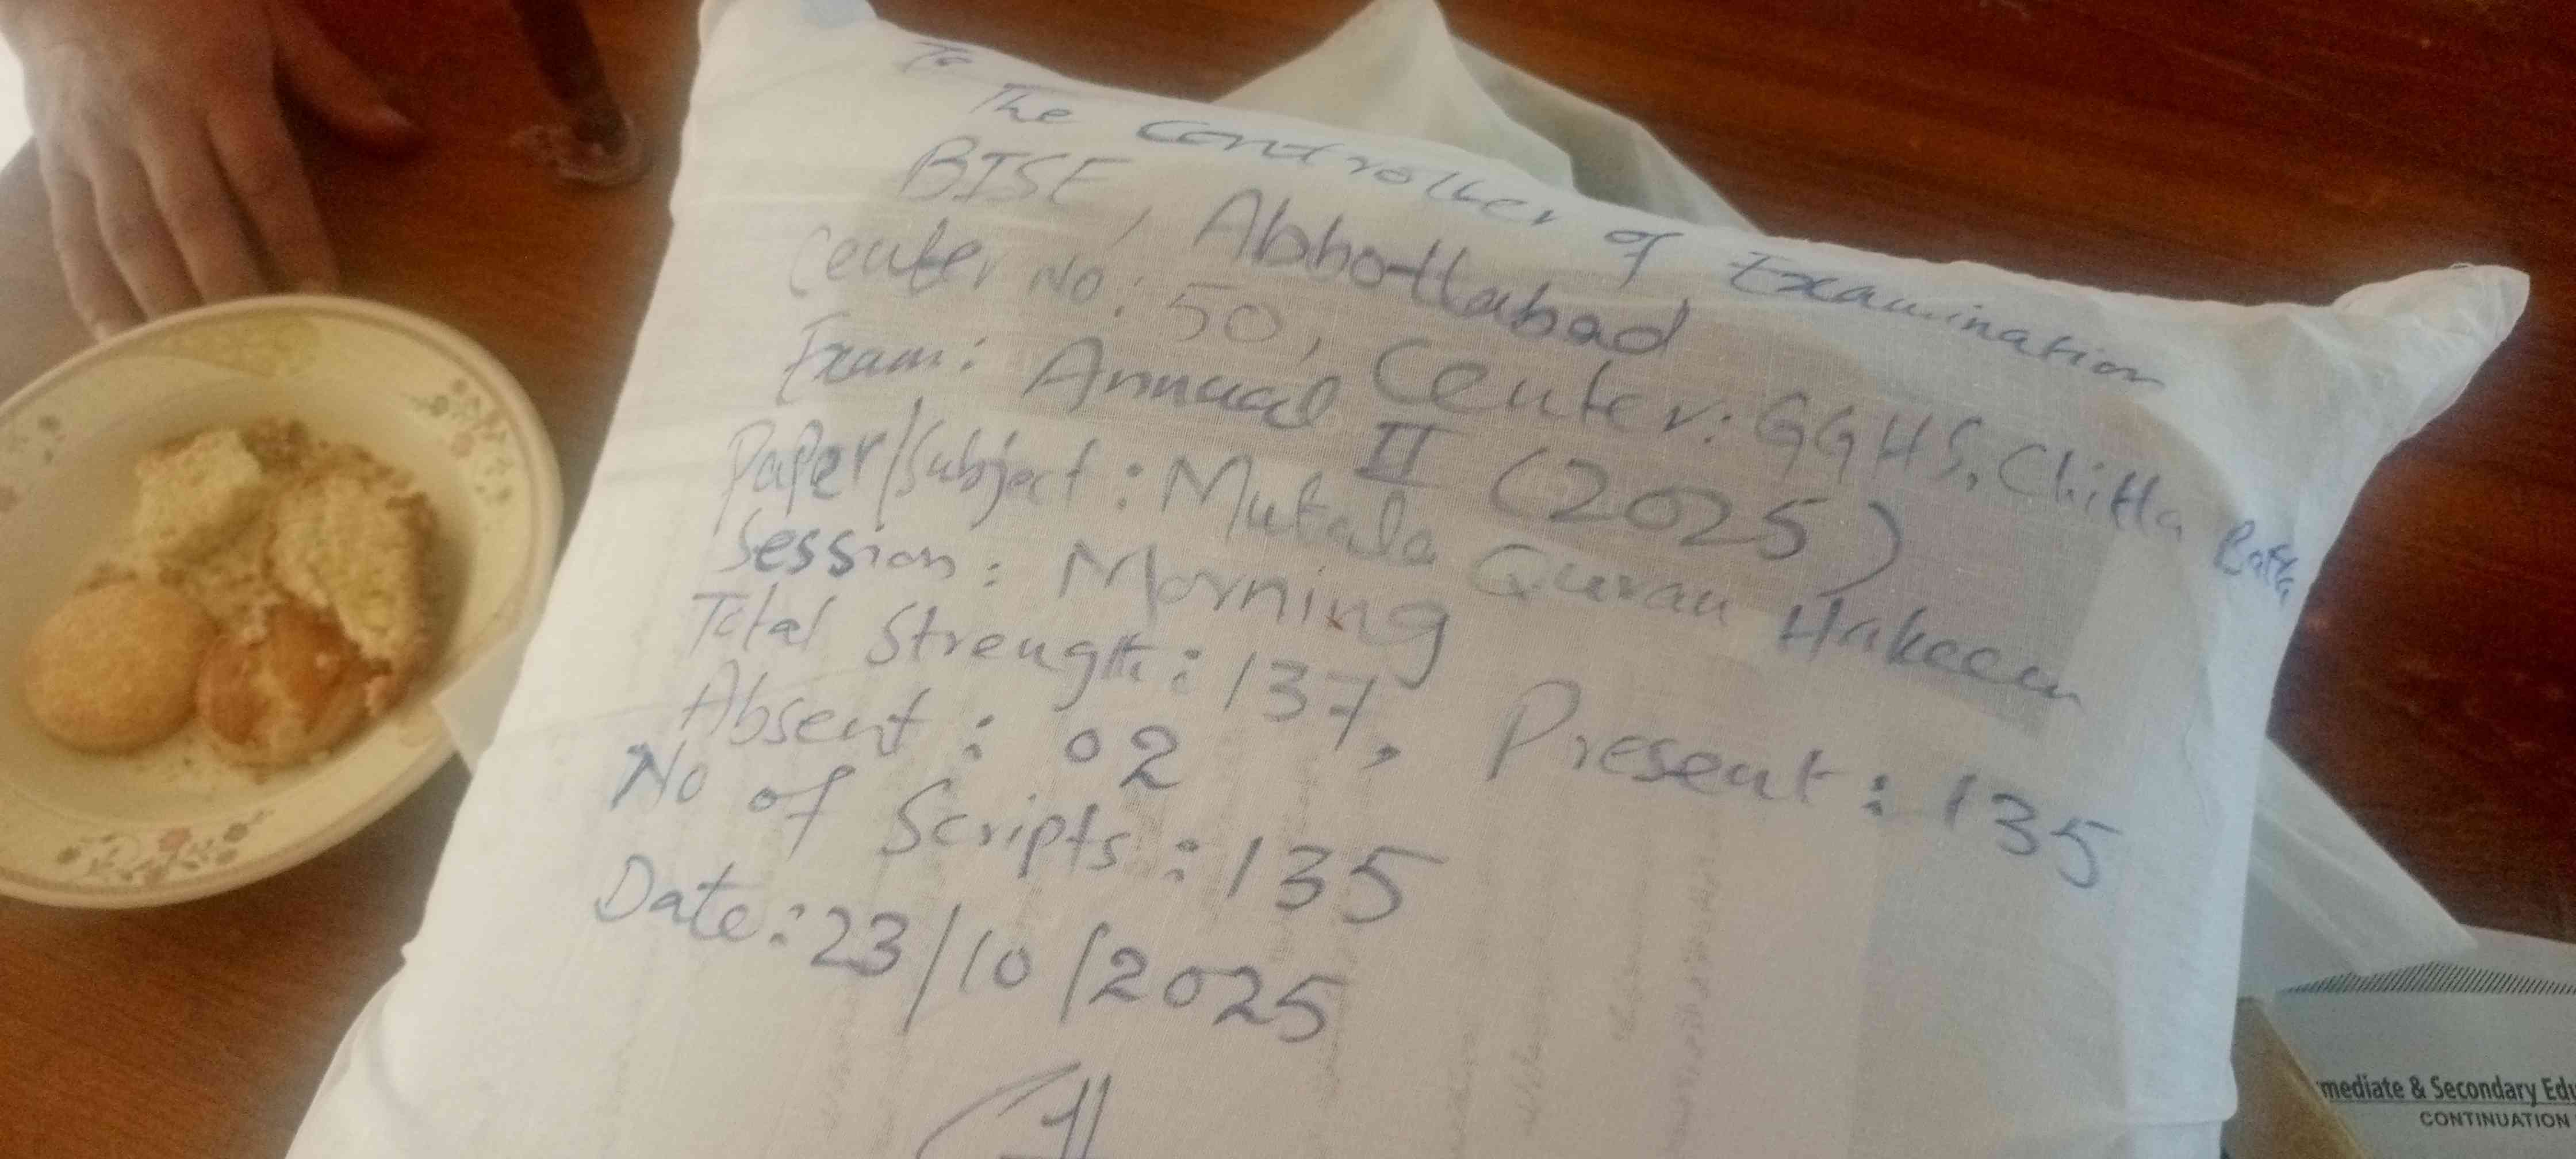 To
The Controller of Examination
BISE, Abbottabad
Center No: 50, Center: GGHS, Chitta Batta
Exam: Annual II (2025)
Paper/Subject: Mutala Quran Hakeem
Session: Morning
Total Strength: 137, Present: 135
Absent: 02
No of Scripts: 135
Date: 23/10/2025
mediate & Secondary Edu
CONTINUATION